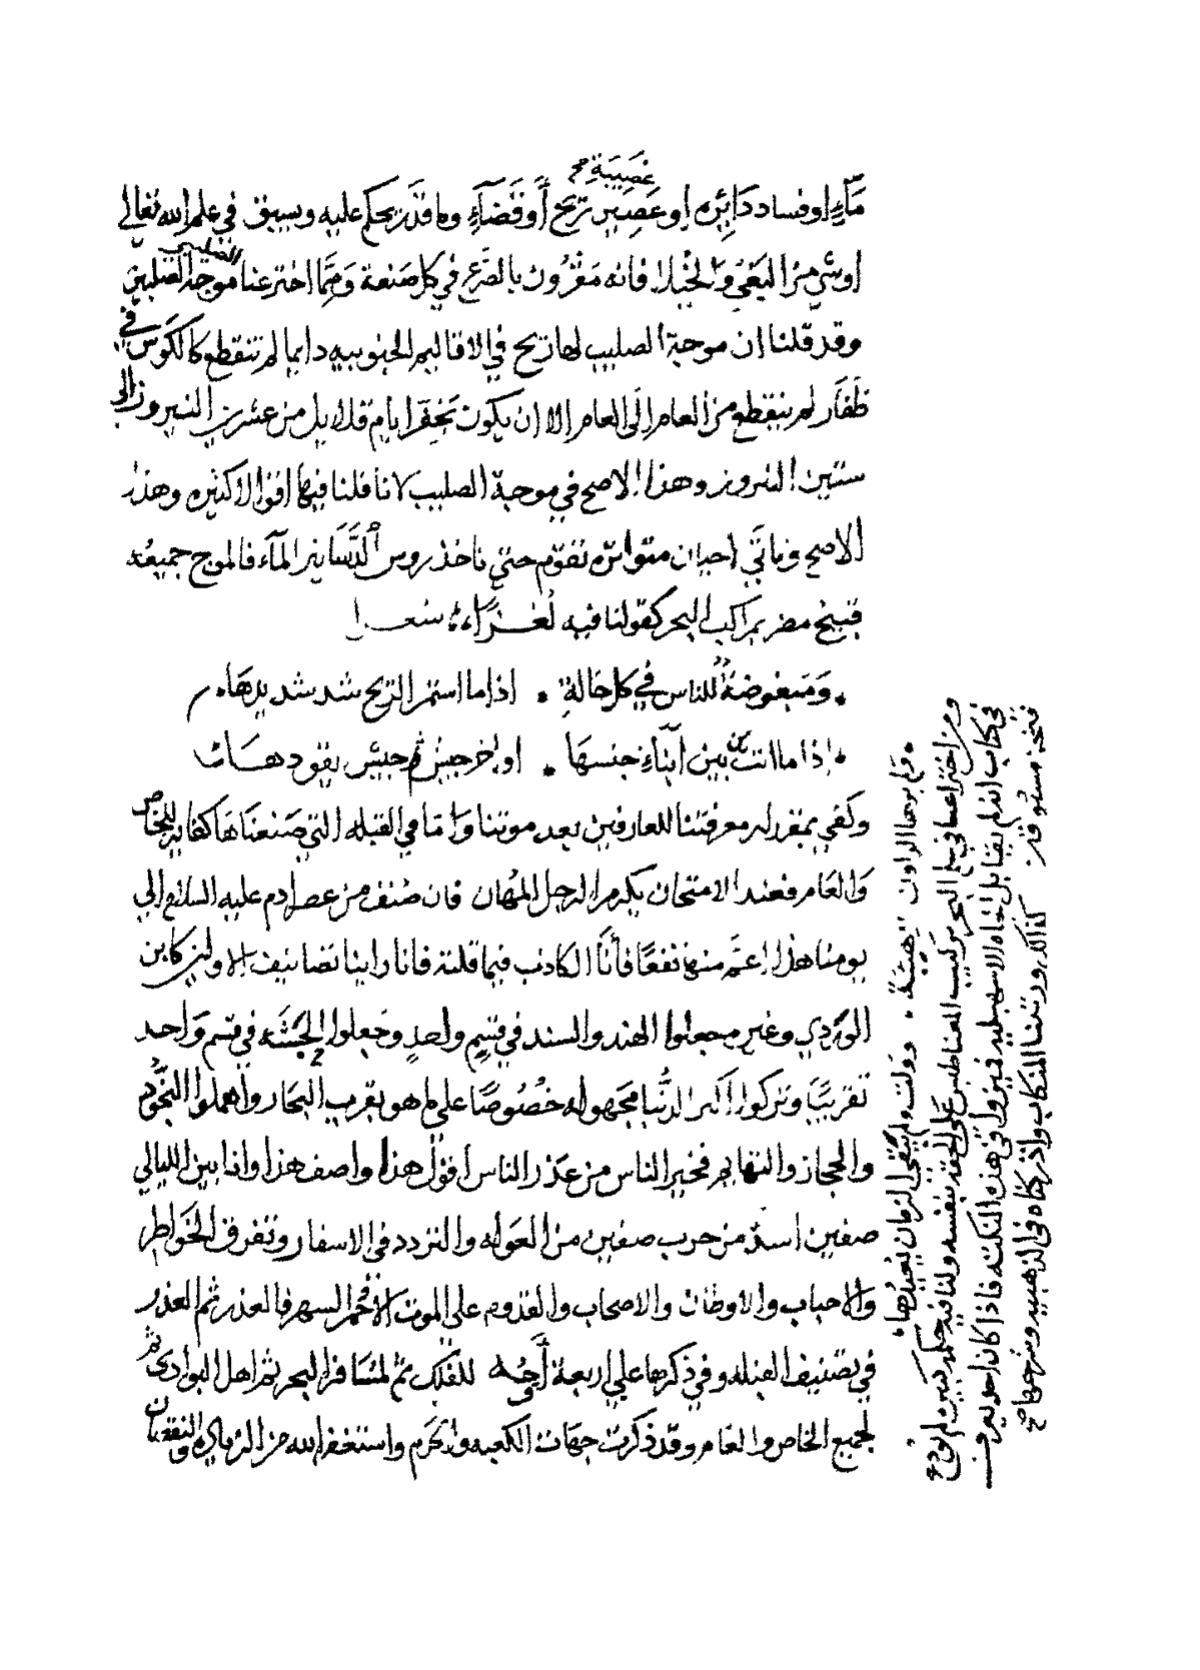 غصيبة صح
ماء او فساد دائره او عصير ريح أو قضاء وما قدر بحكم عليه وسبق في علم الله تعالي
اوشي من البغي والخيلا فانه مقرون بالصرع في كل صنعة ومما اخترعنا موجة الصليبين
الصليب
وقد قلنا ان موجة الصليب لها ريح في الاقاليم الجنوبيه دايما لم تنقطع كالكوس في
ظفار لم ينقطع من العام الى العام الا ان يكون تخفر ايام قلايل من عشرين النيروز الي
ستين النيروز وهذا الاصح في موجة الصليب لانا قلنا فيها اقوال كثيره وهذا
الاصح وياتي احيان متواتره تقوم حتي تاخذ روس الدساتير الماء فالموج جميعه
قبيح مضر بمراكب البحر كقولنا فيه لغزا شعرا
ومبغوضة للناس في كل حالة اذا ما استمر الريح شد شديدها
اذا ما اتت من بين ابناء جنسها اواخر جيش ثم جيش يقودها
وكفي بمقر له معرفتنا للعارفين بعد موتنا واما في القبله التي صنعناها كفايه للخاص
والعام فعند الامتحان يكرم الرجل المهان فان صنف من عصر ادم عليه السلام الي
يومنا هذا اعم منها نفعا فأنا الكاذب فيما قلته فانا راينا تصانيف الاولين كابن
الوردي وغيره جعلوا الهند والسند في قسم واحد وجعلوا الحبشه في قسم واحد
تقريبا وتركوا اكبر الدنيا مجهوله خصوصا علي ما هو بقرب البحار واهملوا النجود
والحجاز والتهايم فخير الناس من عذر الناس اقول هذا واصف هذا وانا بين الليالي
صفين اشد من حرب صفين من العوله والتردد في الاسفار وتفرق الخواطر
والاحباب والاوطان والاصحاب والقدوم علي الموت الاحمر السهر فالعذر ثم العذر
في تصنيف القبله وفي ذكرها علي اربعة أوجه للفلك ثم لمسافر البحر ثم اهل البوادي ثم
لجميع الخاص والعام وقد ذكرت جهات الكعبه والحرم واستغفر الله من الزياده والنقصان
ولم يرجها الراون هيبة وولت ولم يبقى الزمان يعيدها
ومن اختراعنا في علم البحر تركيب المغناطيس على الحقه بنفسه ولنا فيه حكمة كبيره لم تودع
في كتاب انه لم يقابل الجاه الا سهيليه فميزوا في هذه النكته فاذا كان احد يعرف
فنحن مسبوقين كذا لكردتنا المنكاب وذكرناه في الذهبيه وشرحها صح